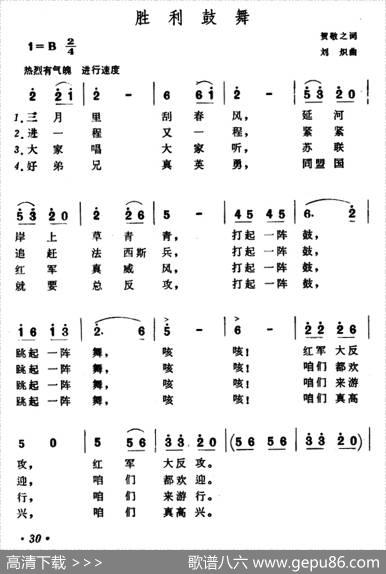 胜利鼓舞
1=B 2/4
贺敬之词
刘炽曲
热烈有气魄 进行速度
2 2 1 | 2 - | 6 6 1 | 2 - | 5 3 2 0 |
1.三月里 刮春风，延河
2.进一程 又一程，紧紧
3.大家唱 大家听，苏联
4.好弟兄 真英勇，同盟国
5 3 2 0 | 2 2 6 | 5 - | 4 5 4 5 | 6. 2 |
岸上草青青，打起一阵鼓，
追赶法西斯兵，打起一阵鼓，
红军真威风，打起一阵鼓，
就要总反攻，打起一阵鼓，
1 6 1 3 | 2. 6 | 5 - | 6 - | 2 2 2 6 |
跳起一阵舞，咳 咳！红军大反
跳起一阵舞，咳 咳！咱们都欢
跳起一阵舞，咳 咳！咱们来游
跳起一阵舞，咳 咳！咱们真高
5 0 | 5 5 6 | 3 3 2 0 | (5 6 5 6 | 3 3 2 0) |
攻，红军大反攻。
迎，咱们都欢迎。
行，咱们来游行。
兴，咱们真高兴。
·30·
高清下载 >>>>
歌谱八六 - www.gepu86.com